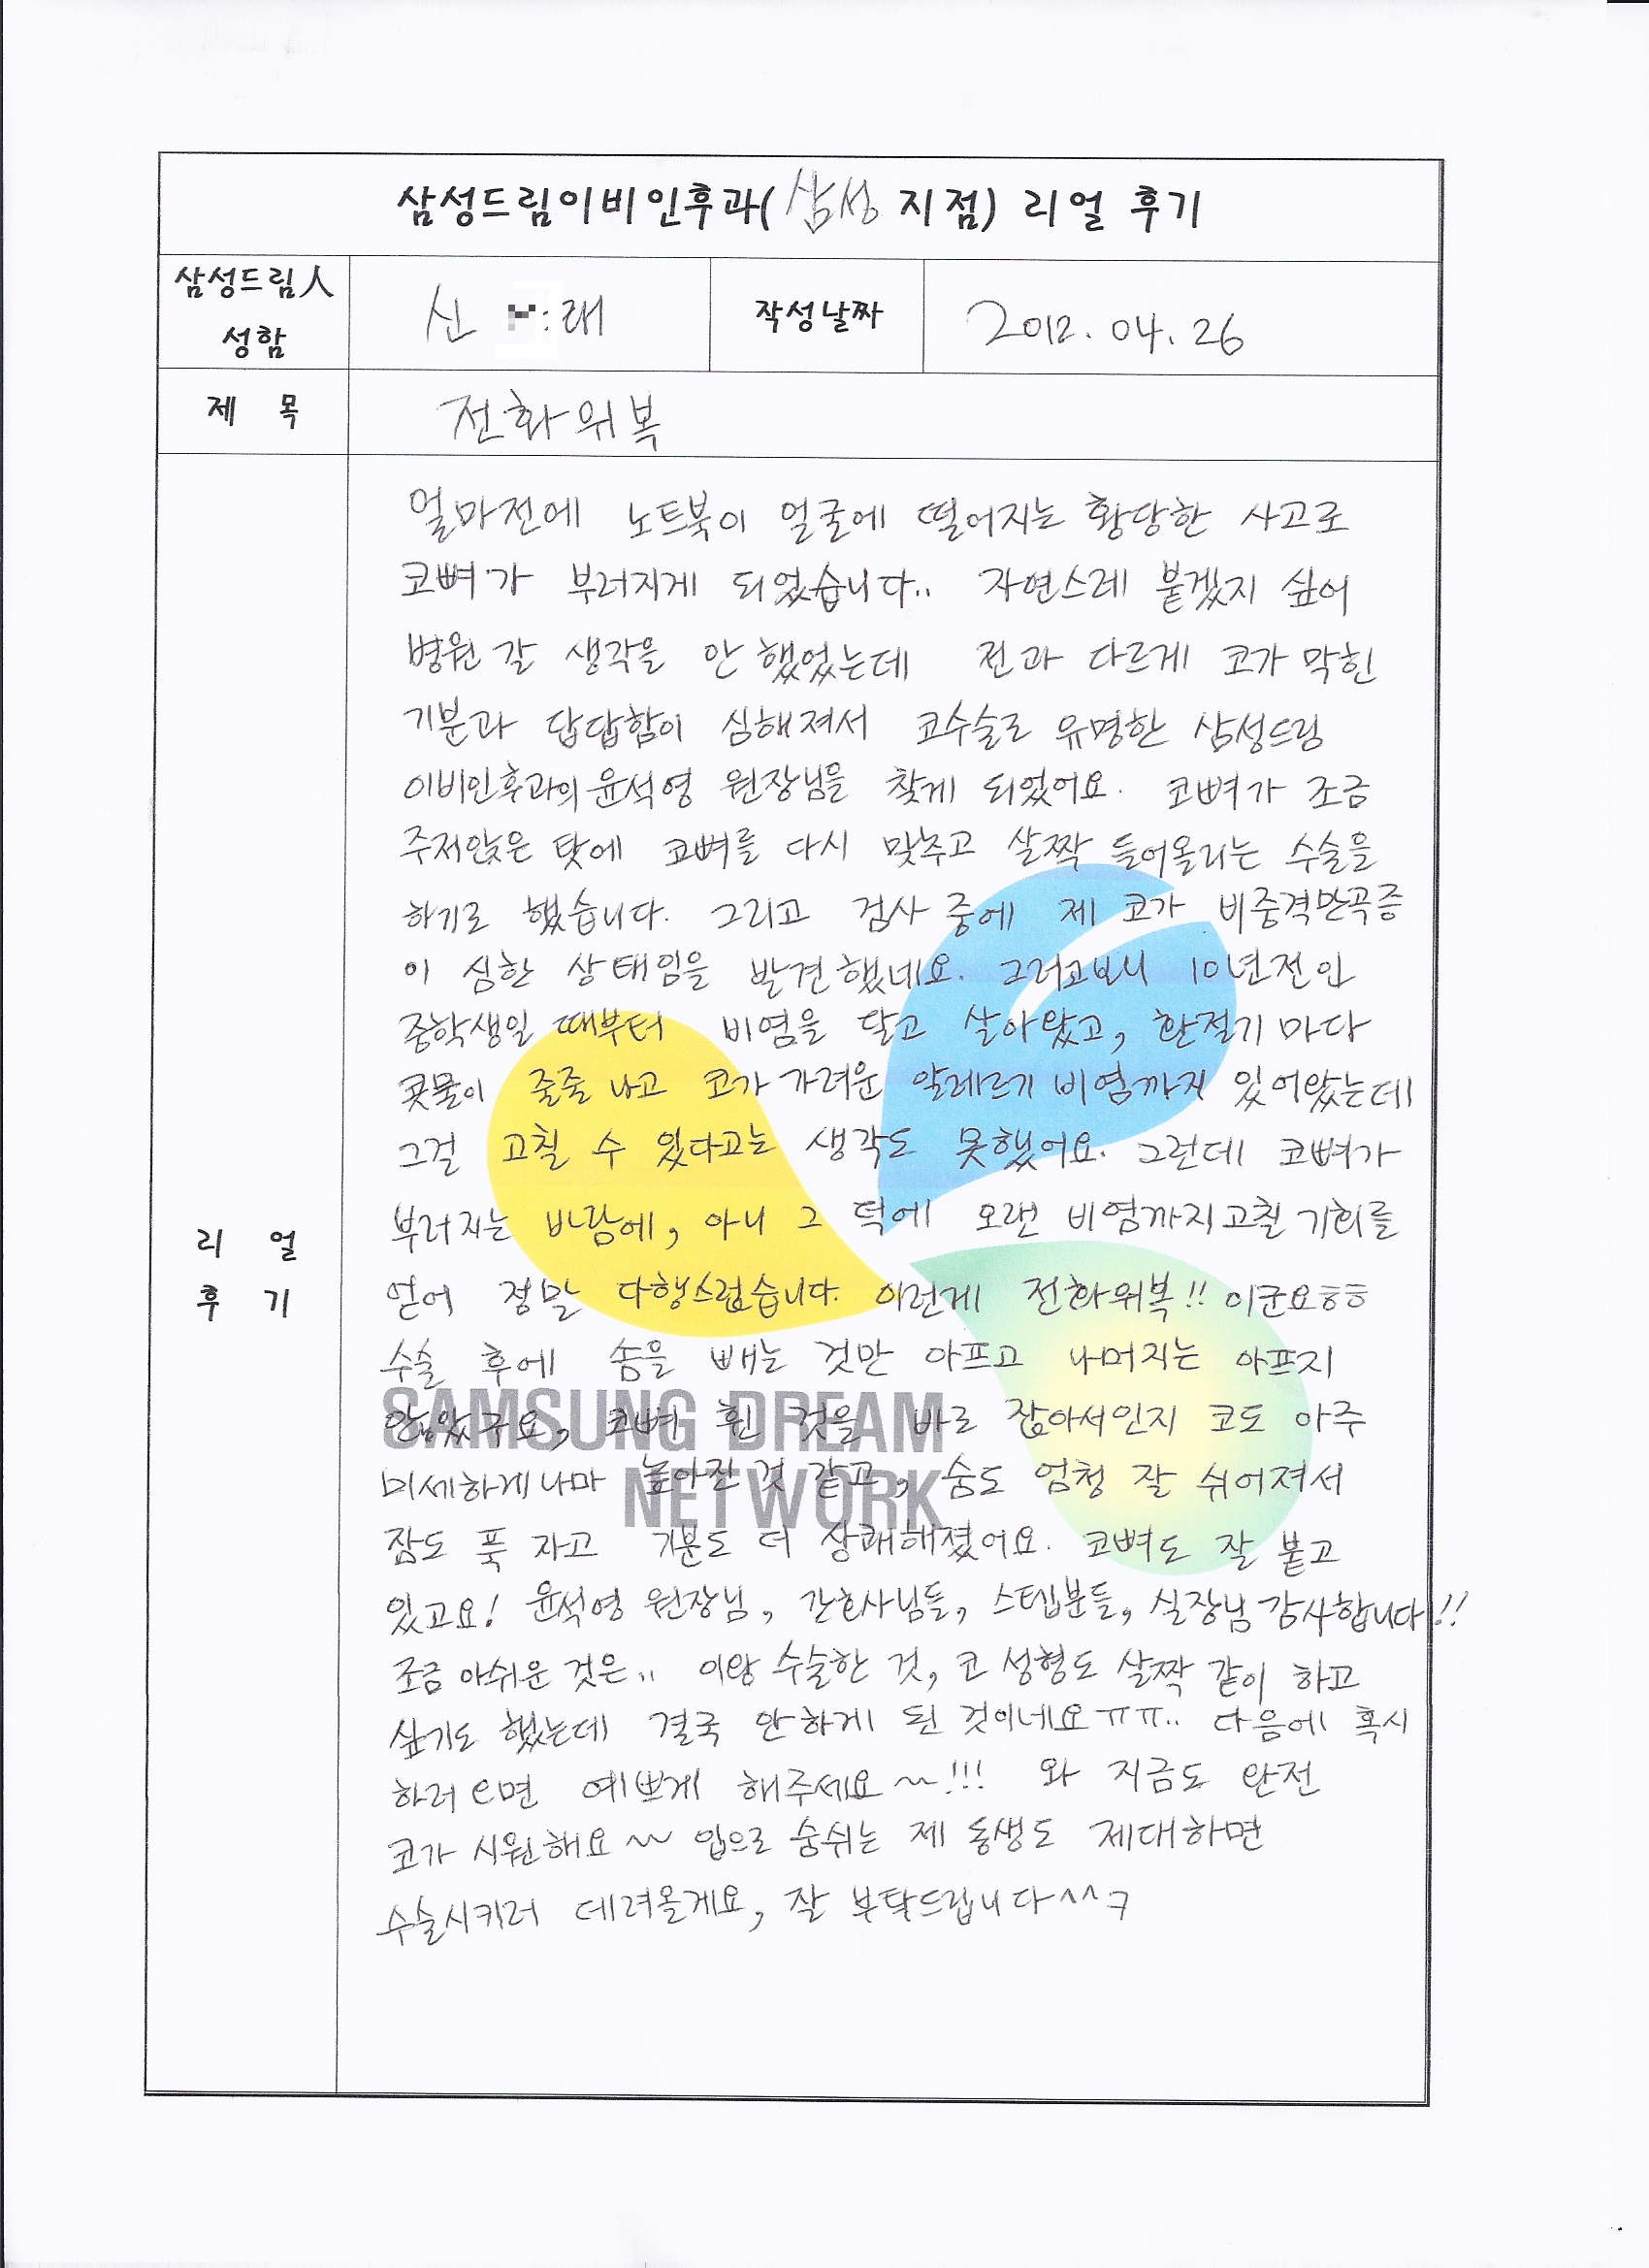 삼성드림이비인후과(삼성 지점) 리얼 후기
삼성드림人
성함
신 래
작성날짜
2012. 04. 26
제 목
전화위복
리 얼
후 기
얼마전에 노트북이 얼굴에 떨어지는 황당한 사고로
코뼈가 부러지게 되었습니다.. 자연스레 붙겠지 싶어
병원 갈 생각을 안 했었는데 전과 다르게 코가 막힌
기분과 답답함이 심해져서 코수술로 유명한 삼성드림
이비인후과의 윤석영 원장님을 찾게 되었어요. 코뼈가 조금
주저앉은 탓에 코뼈를 다시 맞추고 살짝 들어올리는 수술을
하기로 했습니다. 그리고 검사 중에 제 코가 비중격만곡증
이 심한 상태임을 발견했네요. 그러고보니 10년전인
중학생일 때부터 비염을 달고 살아왔고, 환절기 마다
콧물이 줄줄 나고 코가 가려운 알레르기 비염까지 있어왔는데
그걸 고칠 수 있다고는 생각도 못했어요. 그런데 코뼈가
부러지는 바람에, 아니 그 덕에 오랜 비염까지 고칠 기회를
얻어 정말 다행스럽습니다. 이런게 전화위복!! 이군요ㅎㅎ
수술 후에 솜을 빼는 것만 아프고 나머지는 아프지
않았구요, 코뼈 휜 것을 바로 잡아서인지 코도 아주
미세하게나마 높아진 것 같고, 숨도 엄청 잘 쉬어져서
잠도 푹 자고 기분도 더 상쾌해졌어요. 코뼈도 잘 붙고
있고요! 윤석영 원장님, 간호사님들, 스텝분들, 실장님 감사합니다!!
조금 아쉬운 것은.. 이왕 수술한 것, 코 성형도 살짝 같이 하고
싶기도 했는데 결국 안하게 된 것이네요ㅠㅠ.. 다음에 혹시
하러 오면 예쁘게 해주세요~!!! 와 지금도 완전
코가 시원해요~ 입으로 숨쉬는 제 동생도 제대하면
수술시키러 데려올게요, 잘 부탁드립니다^^ㅋ
SAMSUNG DREAM
NETWORK